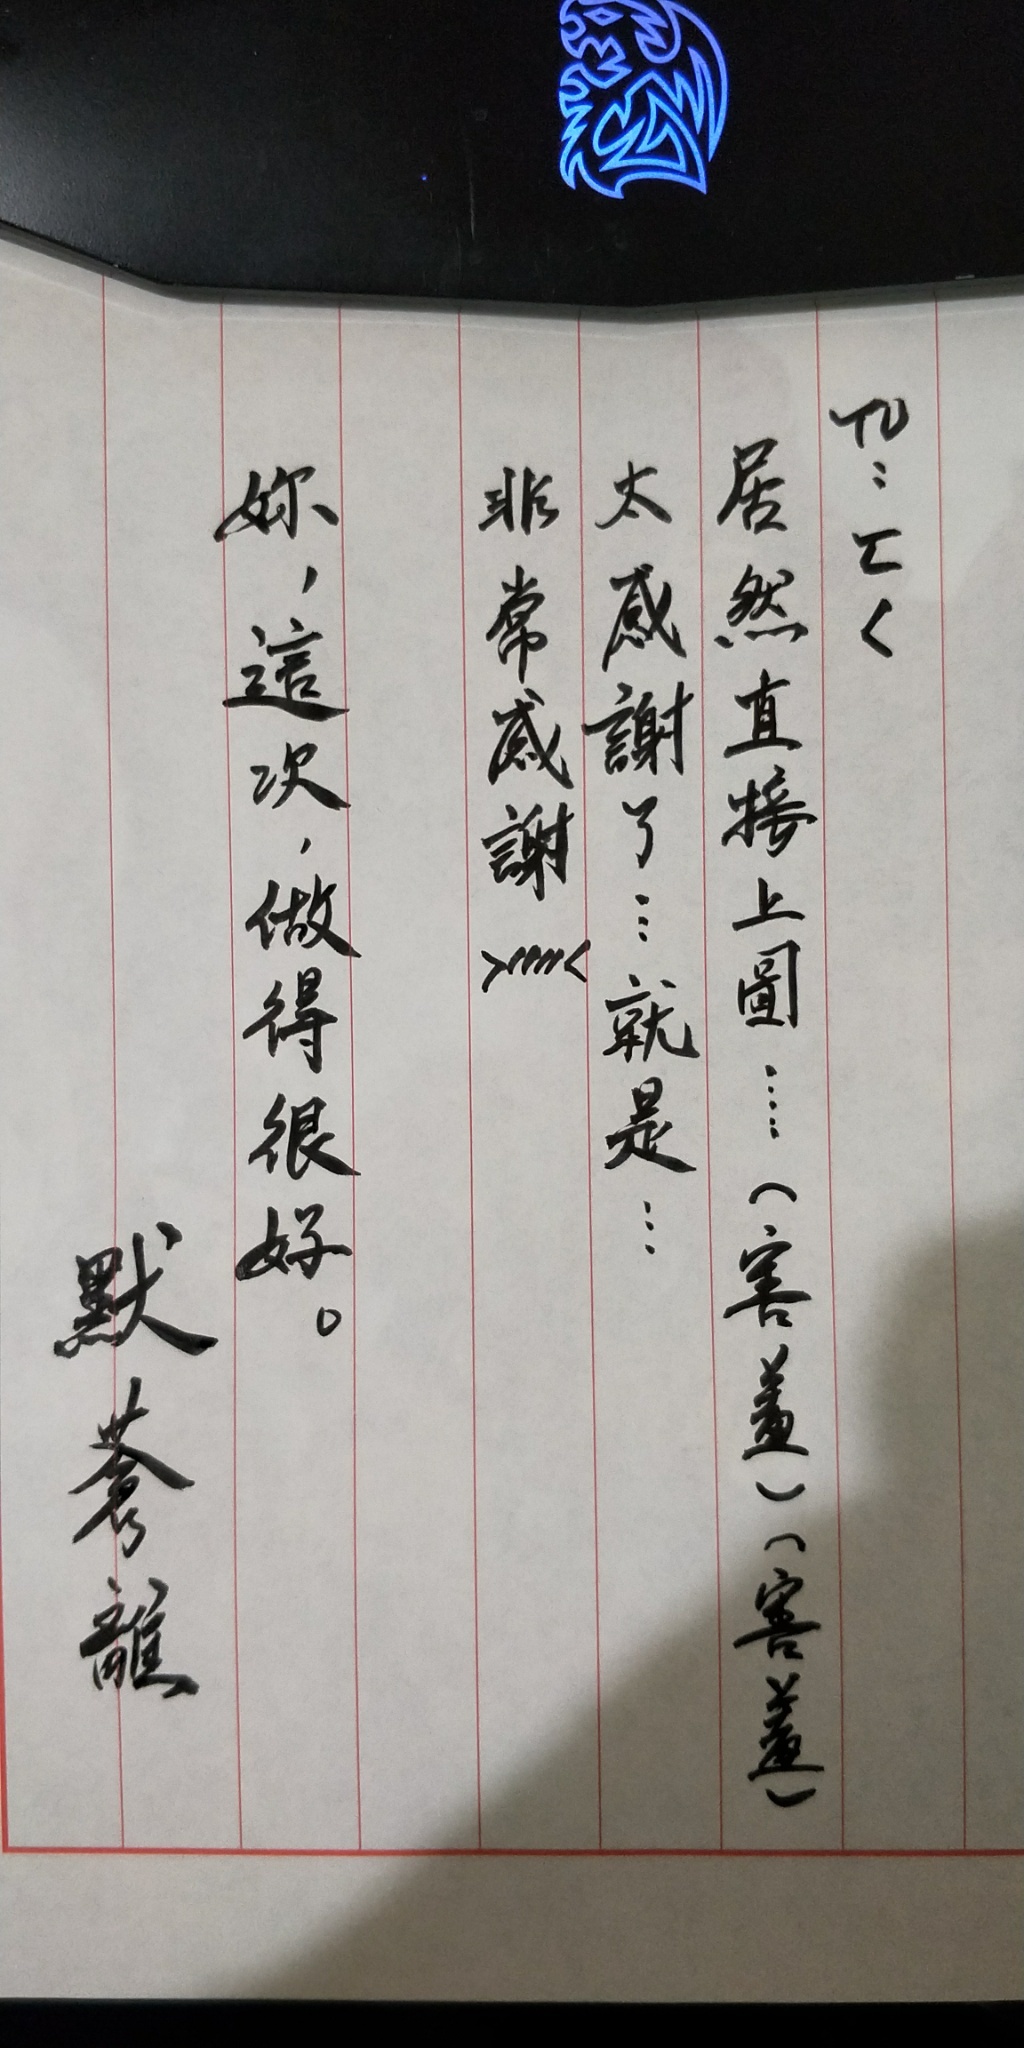 TO：ㄈㄑ
居然直接上圖……（害羞）（害羞）
太感謝了…就是…
非常感謝>/////<
妳，這次，做得很好。
默蒼離